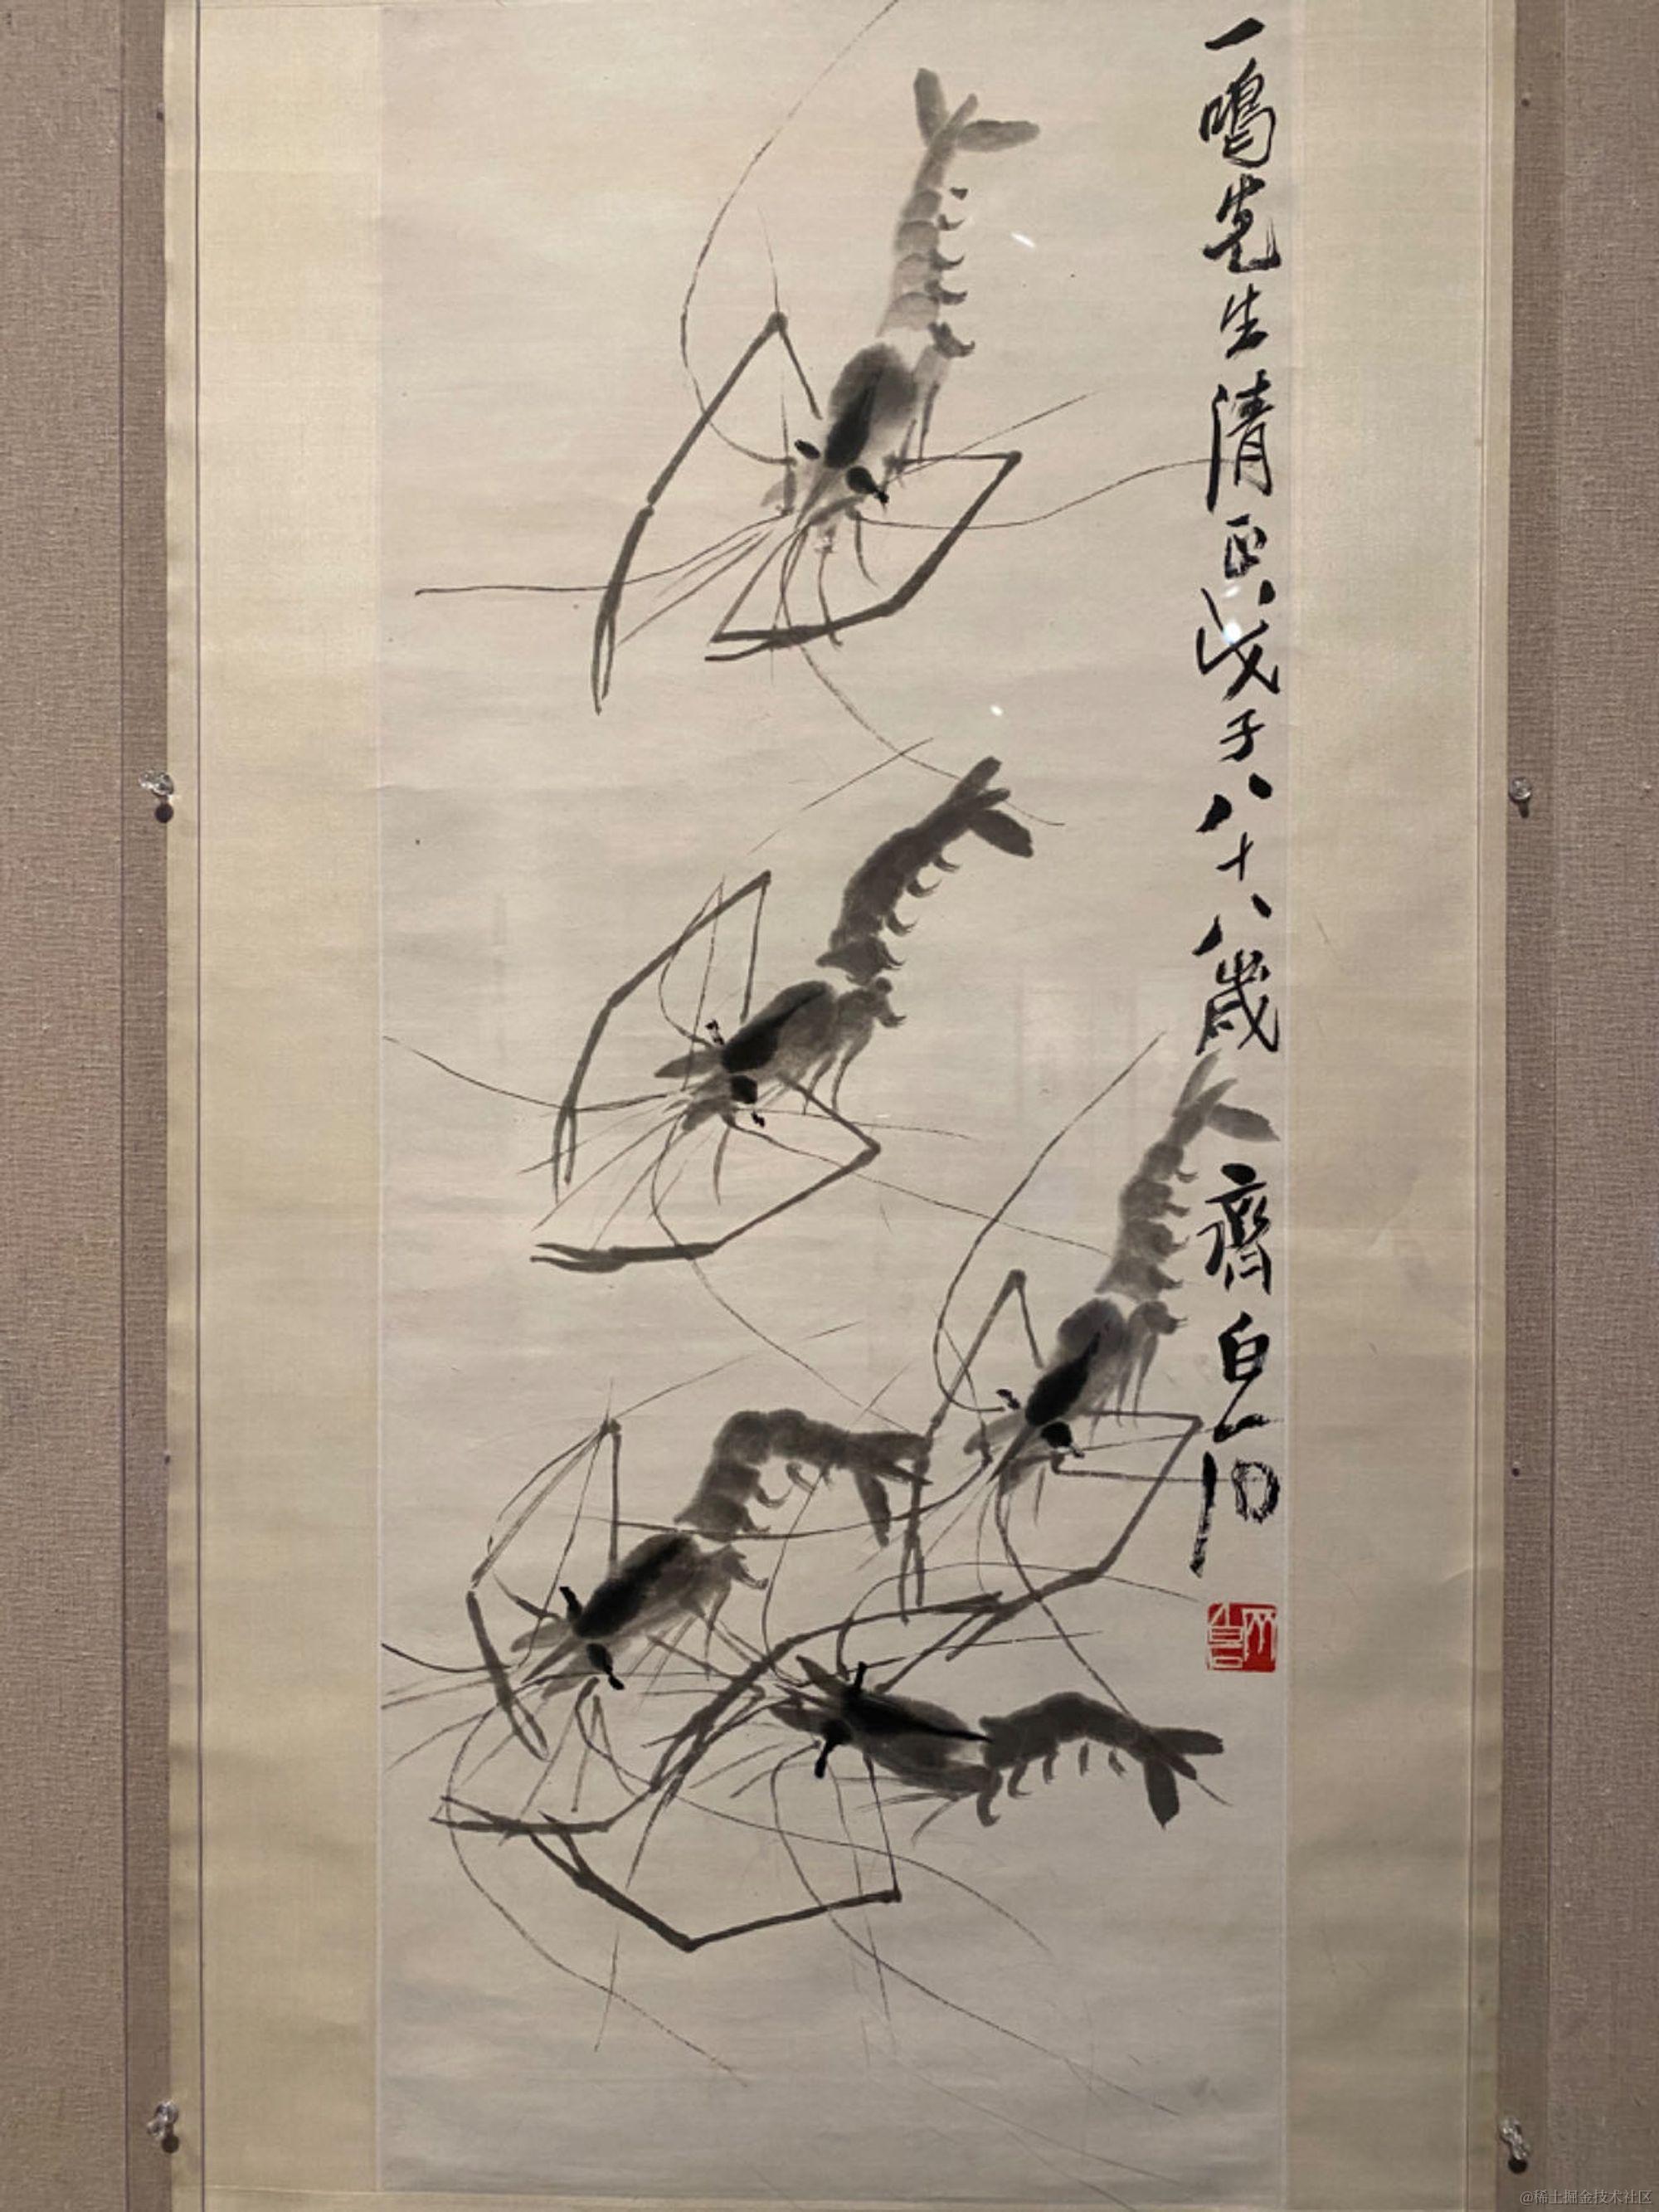 一鳴先生清正戊子八十八歲 齊白石
@稀土掘金技术社区